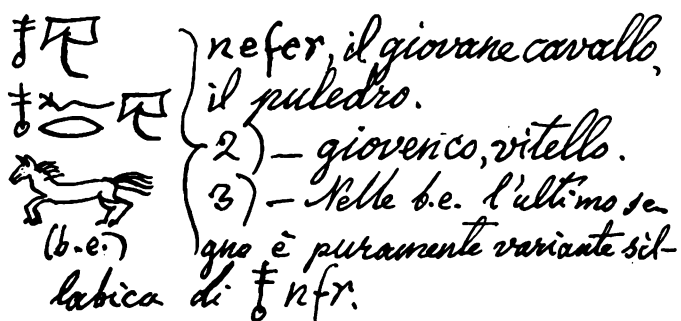 nefer, il giovane cavallo,
il puledro.
2) – giovenco, vitello.
3) – Nelle b.e. l'ultimo se-
(b.e.) gno è puramente variante sil-
labica di 𓄤 nfr.